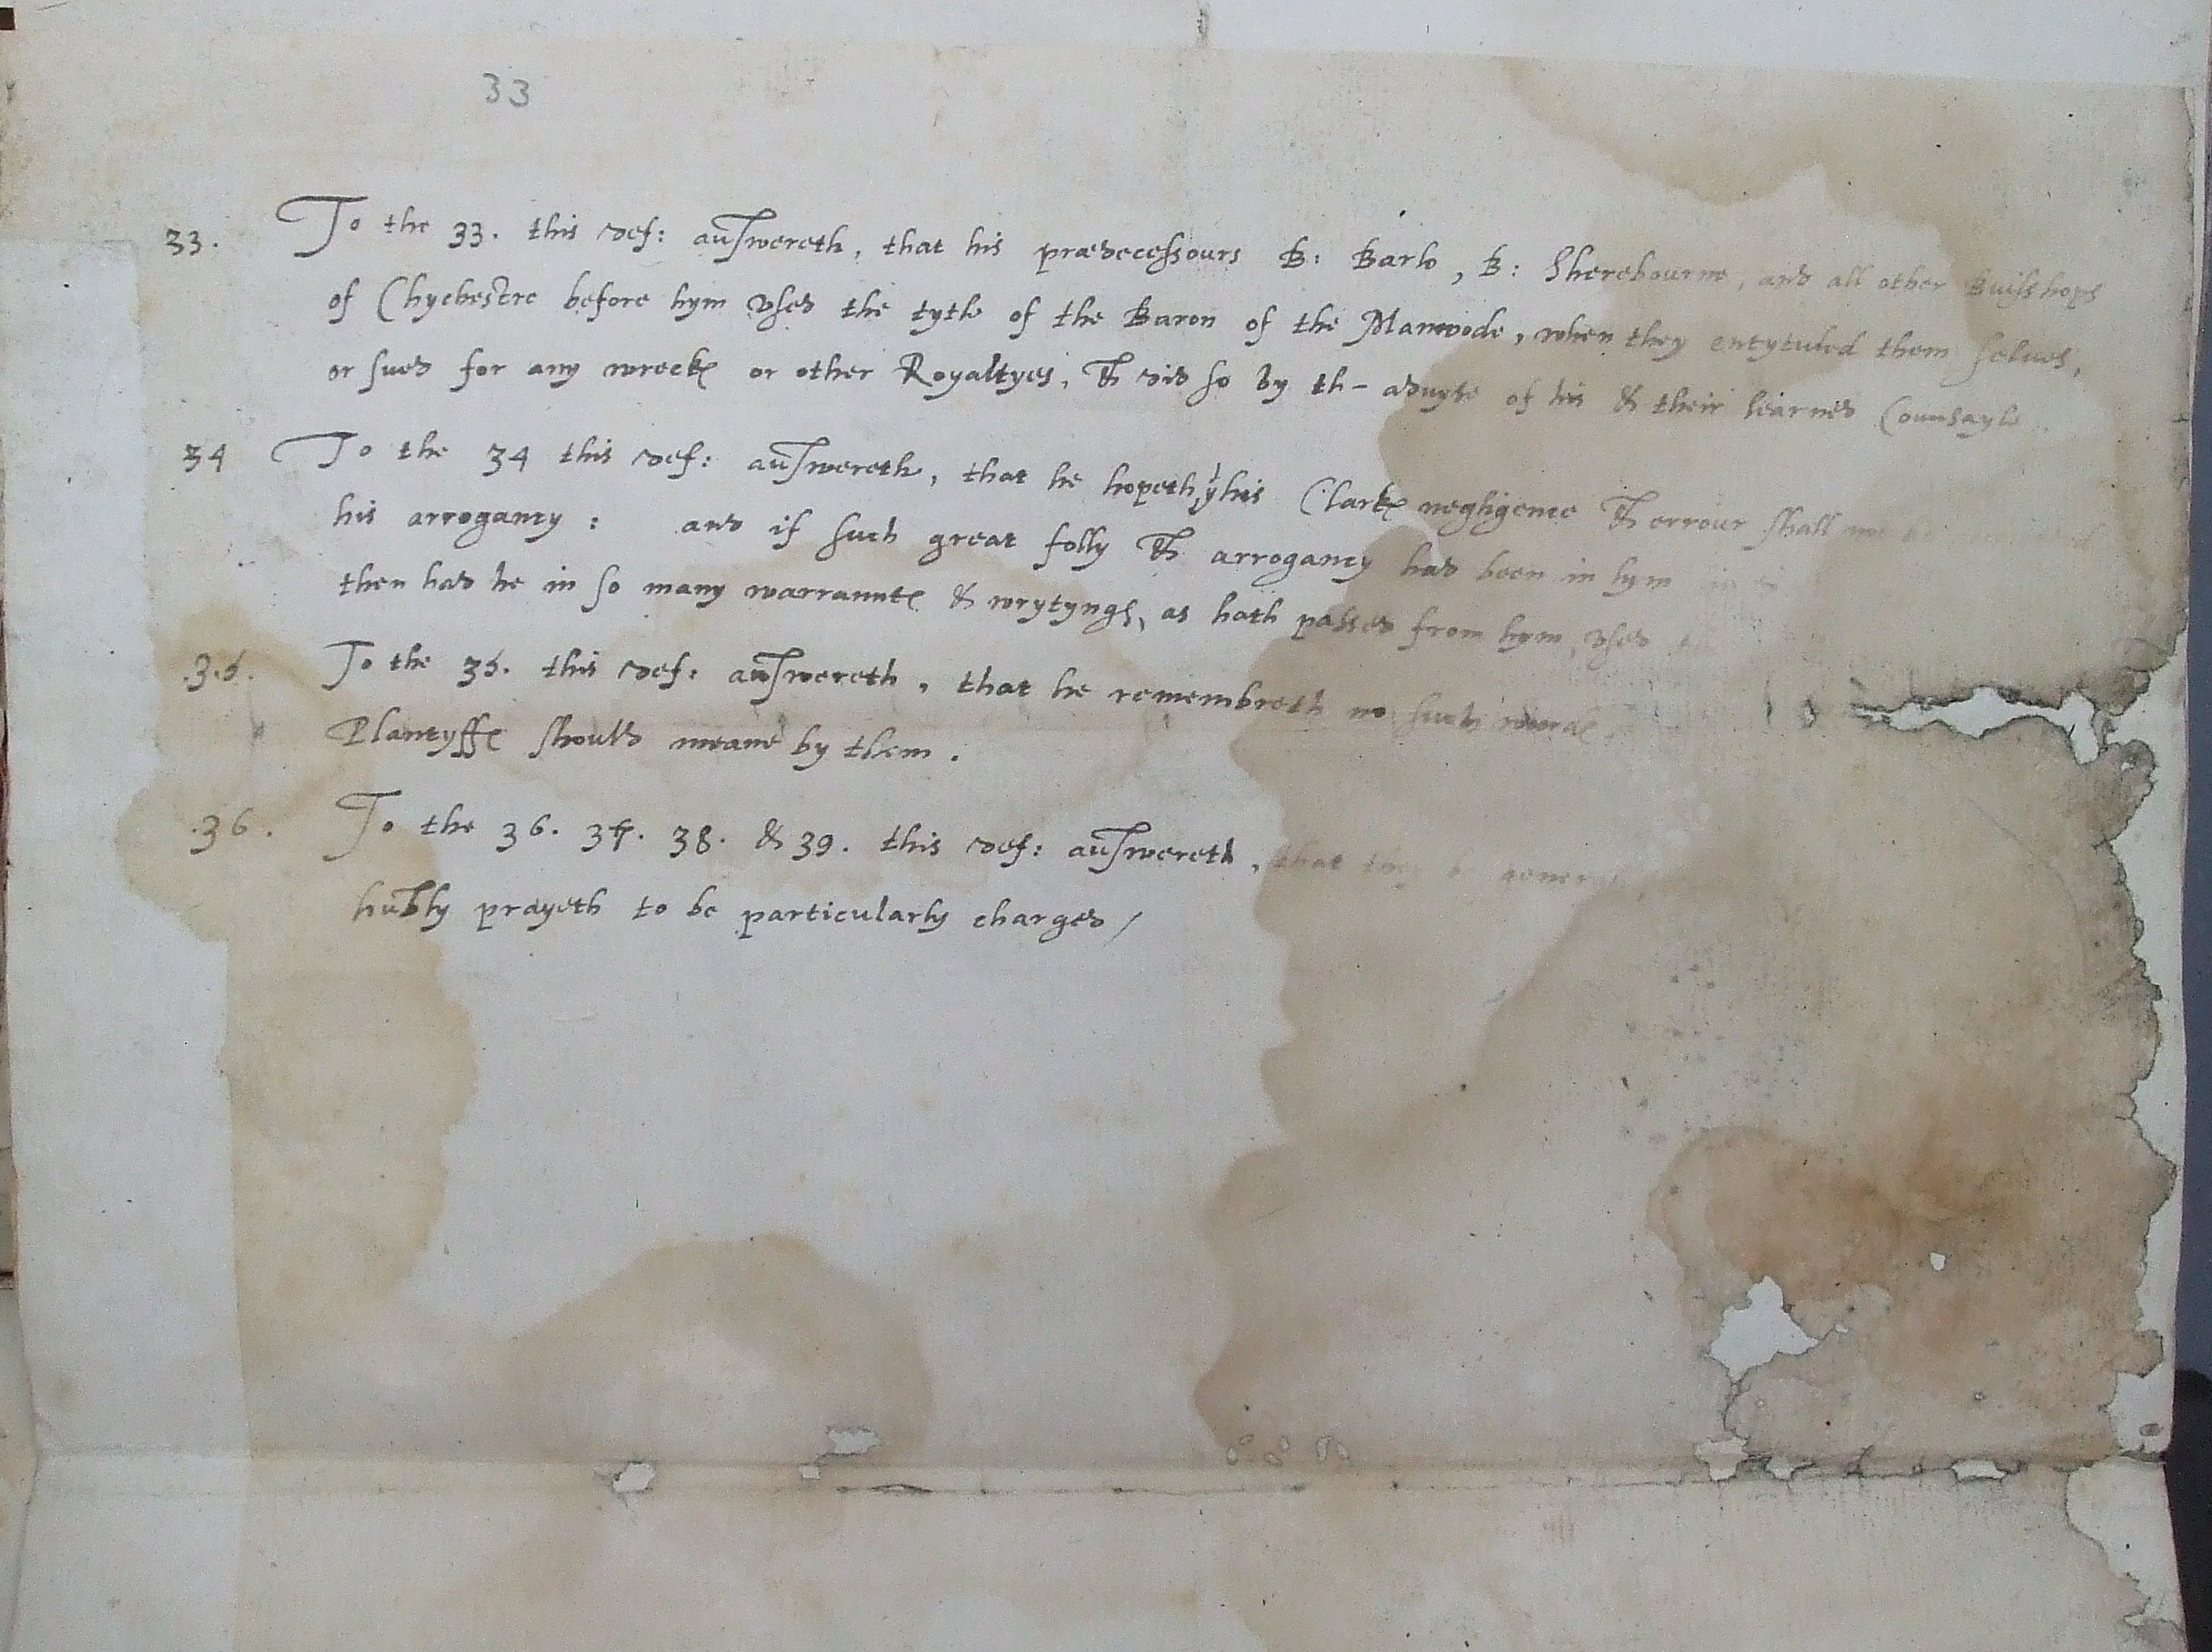 33
33. To the 33. this def: aūswereth, that his prædecessours B: Barlo, B: Sherebourne, and all other Buisshops
of Chychestre before hym vsed the tytle of the Baron of the Manwode, when they entytuled them selues,
or sued for any wreck℮ or other Royaltyes, & did so by th- aduyse of his & their learned Counsayle
34 To the 34 this def: aūswereth, that he hopeth, yͭ his Clark℮ negligence & errour shall not be
his arrogancy : and if such great folly & arrogancy had been in hym in
then had he in so many warraunt℮ & wrytyngs, as hath passed from hym, vsed
.35. To the 35. this def: aūswereth, that he remembreth no such word℮,
Plantyff℮ should meane by them.
.36. To the 36. 37. 38. & 39. this def: aūswereth, that they be
hūbly prayeth to be particularly charged /